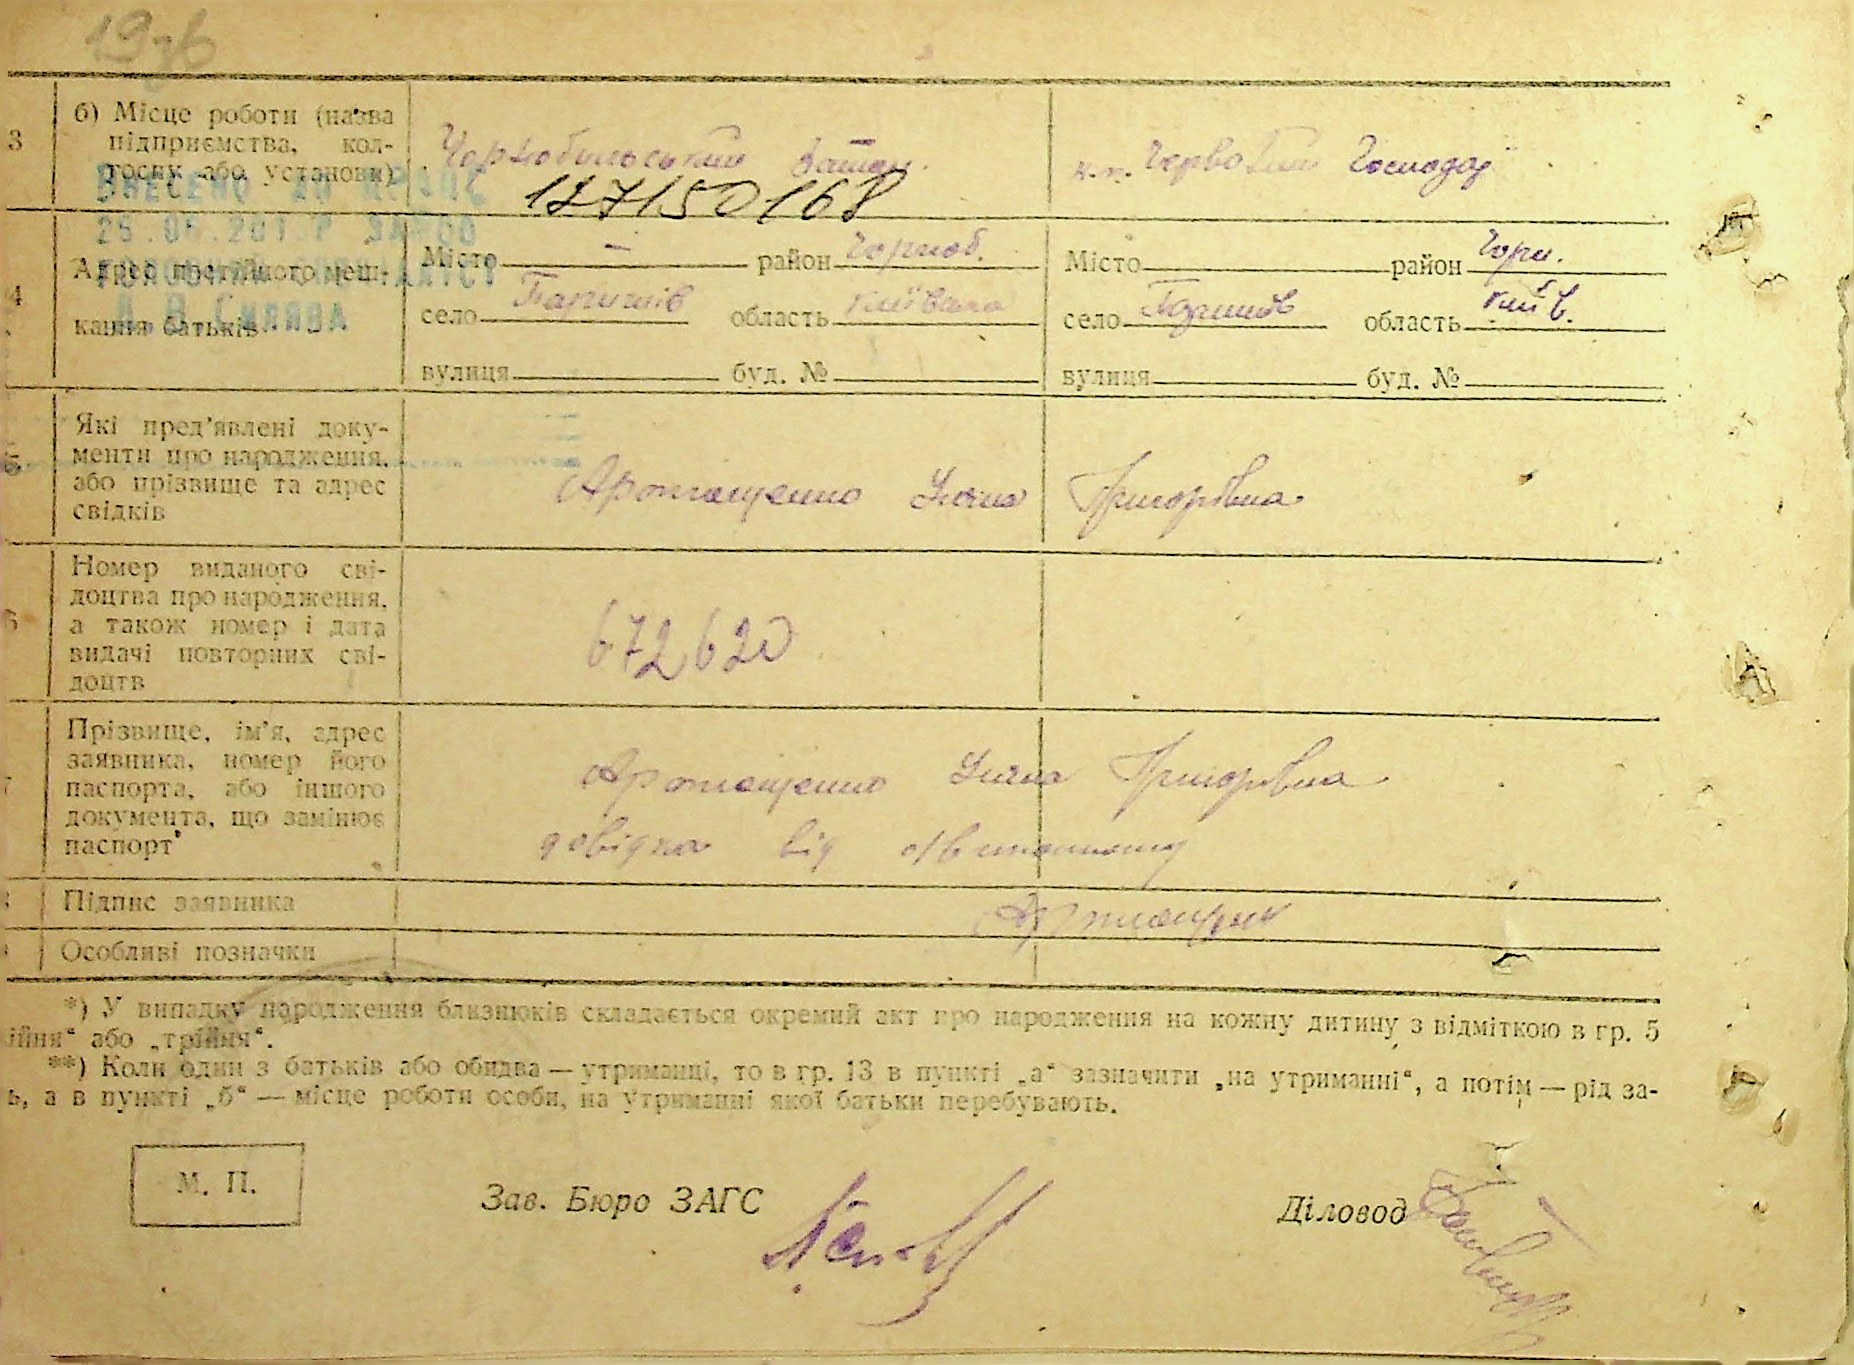 19зв
3
б) Місце роботи (назва
підприємства, кол-
госпу або установи)
Чорнобильський Затон.
к.п. Червоний Господар
ВНЕСЕНО ДО
127150168
4
Адрес постійного меш-
кання батьків
Місто — район Чорноб.
село Паришів область Київська
вулиця буд. №
Місто район Чорн.
село Паришів область Київ.
вулиця буд. №
Які пред'явлені доку-
менти про народження,
або прізвище та адрес
свідків
Григорівна
Номер виданого сві-
доцтва про народження,
а також номер і дата
видачі повторних сві-
доцтв
672620
Прізвище, ім'я, адрес
заявника, номер його
паспорта, або іншого
документа, що замінює
паспорт
Григорівна
довідка від
Підпис заявника
Особливі позначки
*) У випадку народження близнюків складається окремий акт про народження на кожну дитину з відміткою в гр. 5
ійня“ або „трійня“.
**) Коли один з батьків або обидва — утриманці, то в гр. 13 в пункті „а“ зазначити „на утриманні“, а потім — рід за-
ь, а в пункті „б“ — місце роботи особи, на утриманні якої батьки перебувають.
М. П.
Зав. Бюро ЗАГС
Діловод